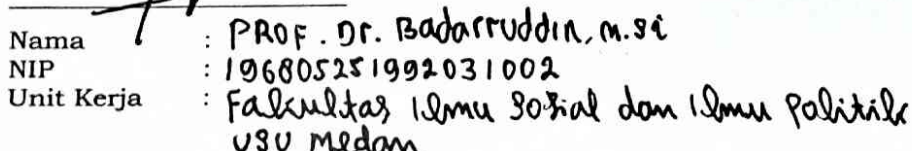 Nama : PROF. Dr. Badarruddin, M.Si
NIP : 196805251992031002
Unit Kerja : Fakultas Ilmu Sosial dan Ilmu Politik
USU Medan